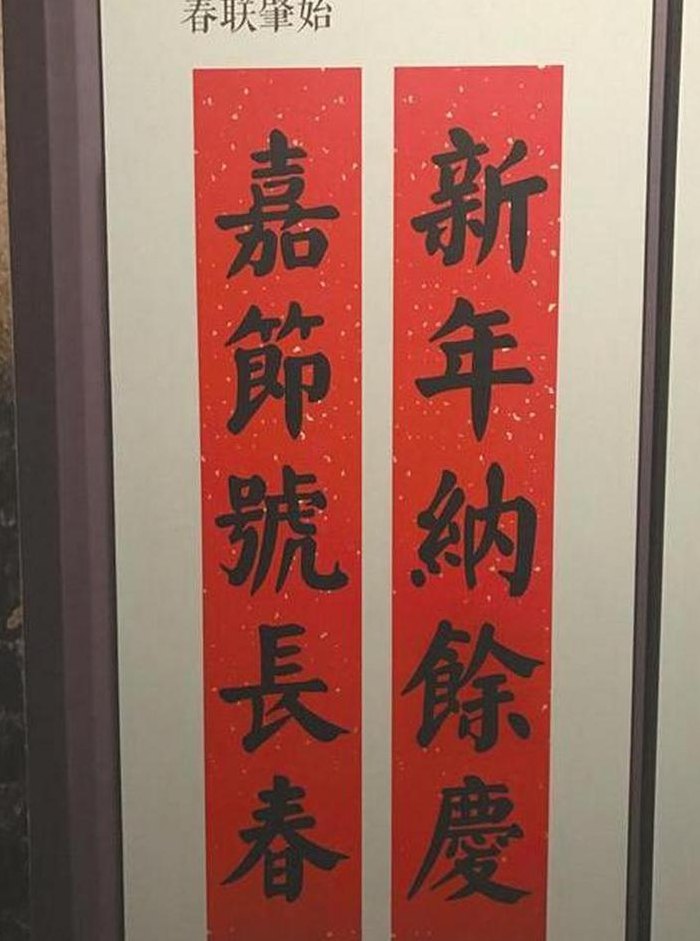 春联肇始
新年納餘慶
嘉節號長春